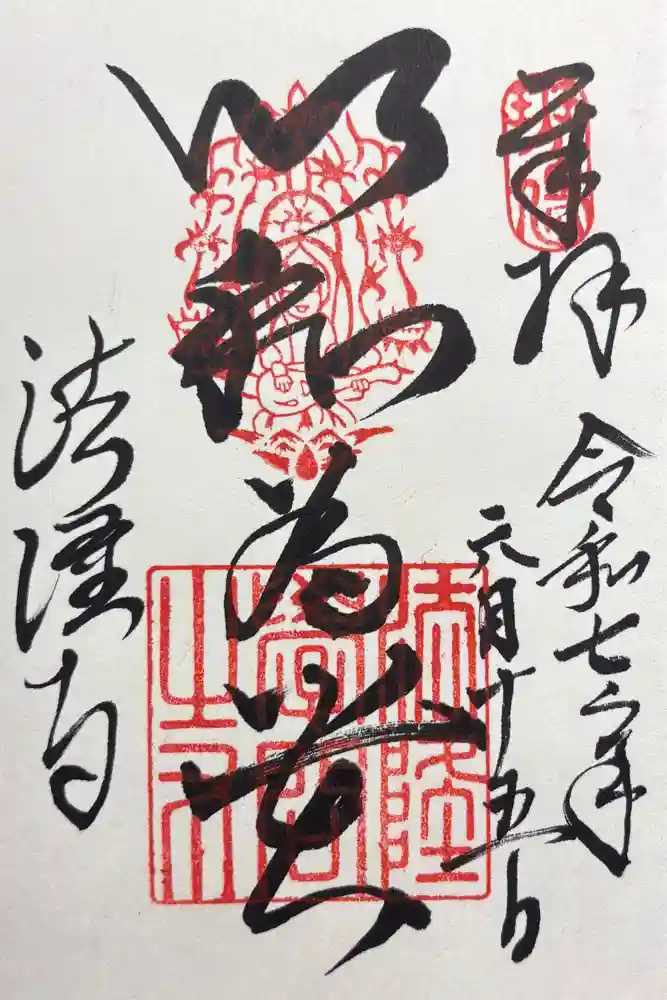 奉拝
令和七年
六月十五日
以和為貴
法隆寺